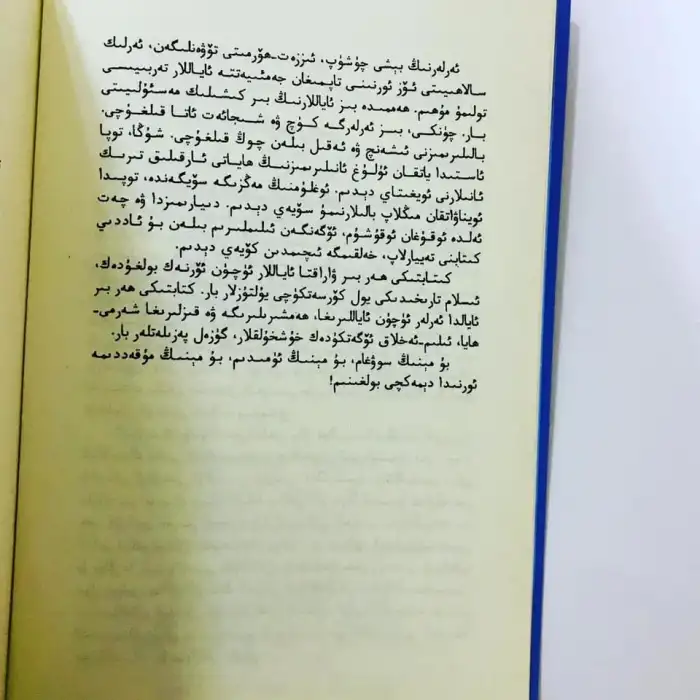 ئەرلەرنىڭ بېشى چۈشۈپ، ئىززەت-ھۆرمىتى تۆۋەنلىگەن، ئەرلىك
سالاھىيىتى ئۆز ئورنىنى تاپمىغان جەمئىيەتتە ئاياللار تەربىيىسى
تولىمۇ مۇھىم. ھەممىدە بىز ئاياللارنىڭ بىر كىشىلىك مەسئۇلىيىتى
بار. چۈنكى، بىز ئەرلەرگە كۈچ ۋە شىجائەت ئاتا قىلغۇچى.
بالىلىرىمىزنى ئىشەنچ ۋە ئەقىل بىلەن چوڭ قىلغۇچى. شۇڭا، توپا
ئاستىدا ياتقان ئۇلۇغ ئانىلىرىمىزنىڭ ھاياتى ئارقىلىق تىرىك
ئانىلارنى ئويغىتاي دېدىم. ئوغلۇمنىڭ مەڭزىگە سۆيگەندە، توپىدا
ئويناۋاتقان مىڭلاپ بالىلارنىمۇ سۆيەي دېدىم. دىيارىمىزدا ۋە چەت
ئەلدە ئوقۇغان ئوقۇشۇم، ئۆگەنگەن ئىلىملىرىم بىلەن بۇ ئاددىي
كىتابنى تەييارلاپ، خەلقىمگە ئىچىمدىن كۆيەي دېدىم.
كىتابتىكى ھەر بىر ۋاراقتا ئاياللار ئۈچۈن ئۆرنەك بولغۇدەك،
ئىسلام تارىخىدىكى يول كۆرسەتكۈچى يۇلتۇزلار بار. كىتابتىكى ھەر بىر
ئايالدا ئەرلەر ئۈچۈن ئاياللىرىغا، ھەمشىرىلىرىگە ۋە قىزلىرىغا شەرمى-
ھايا، ئىلىم-ئەخلاق ئۆگەتكۈدەك خۇشخۇلقلار، گۈزەل پەزىلەتلەر بار.
بۇ مېنىڭ سوۋغام، بۇ مېنىڭ ئۈمىدىم، بۇ مېنىڭ مۇقەددىمە
ئورنىدا دېمەكچى بولغىنىم!